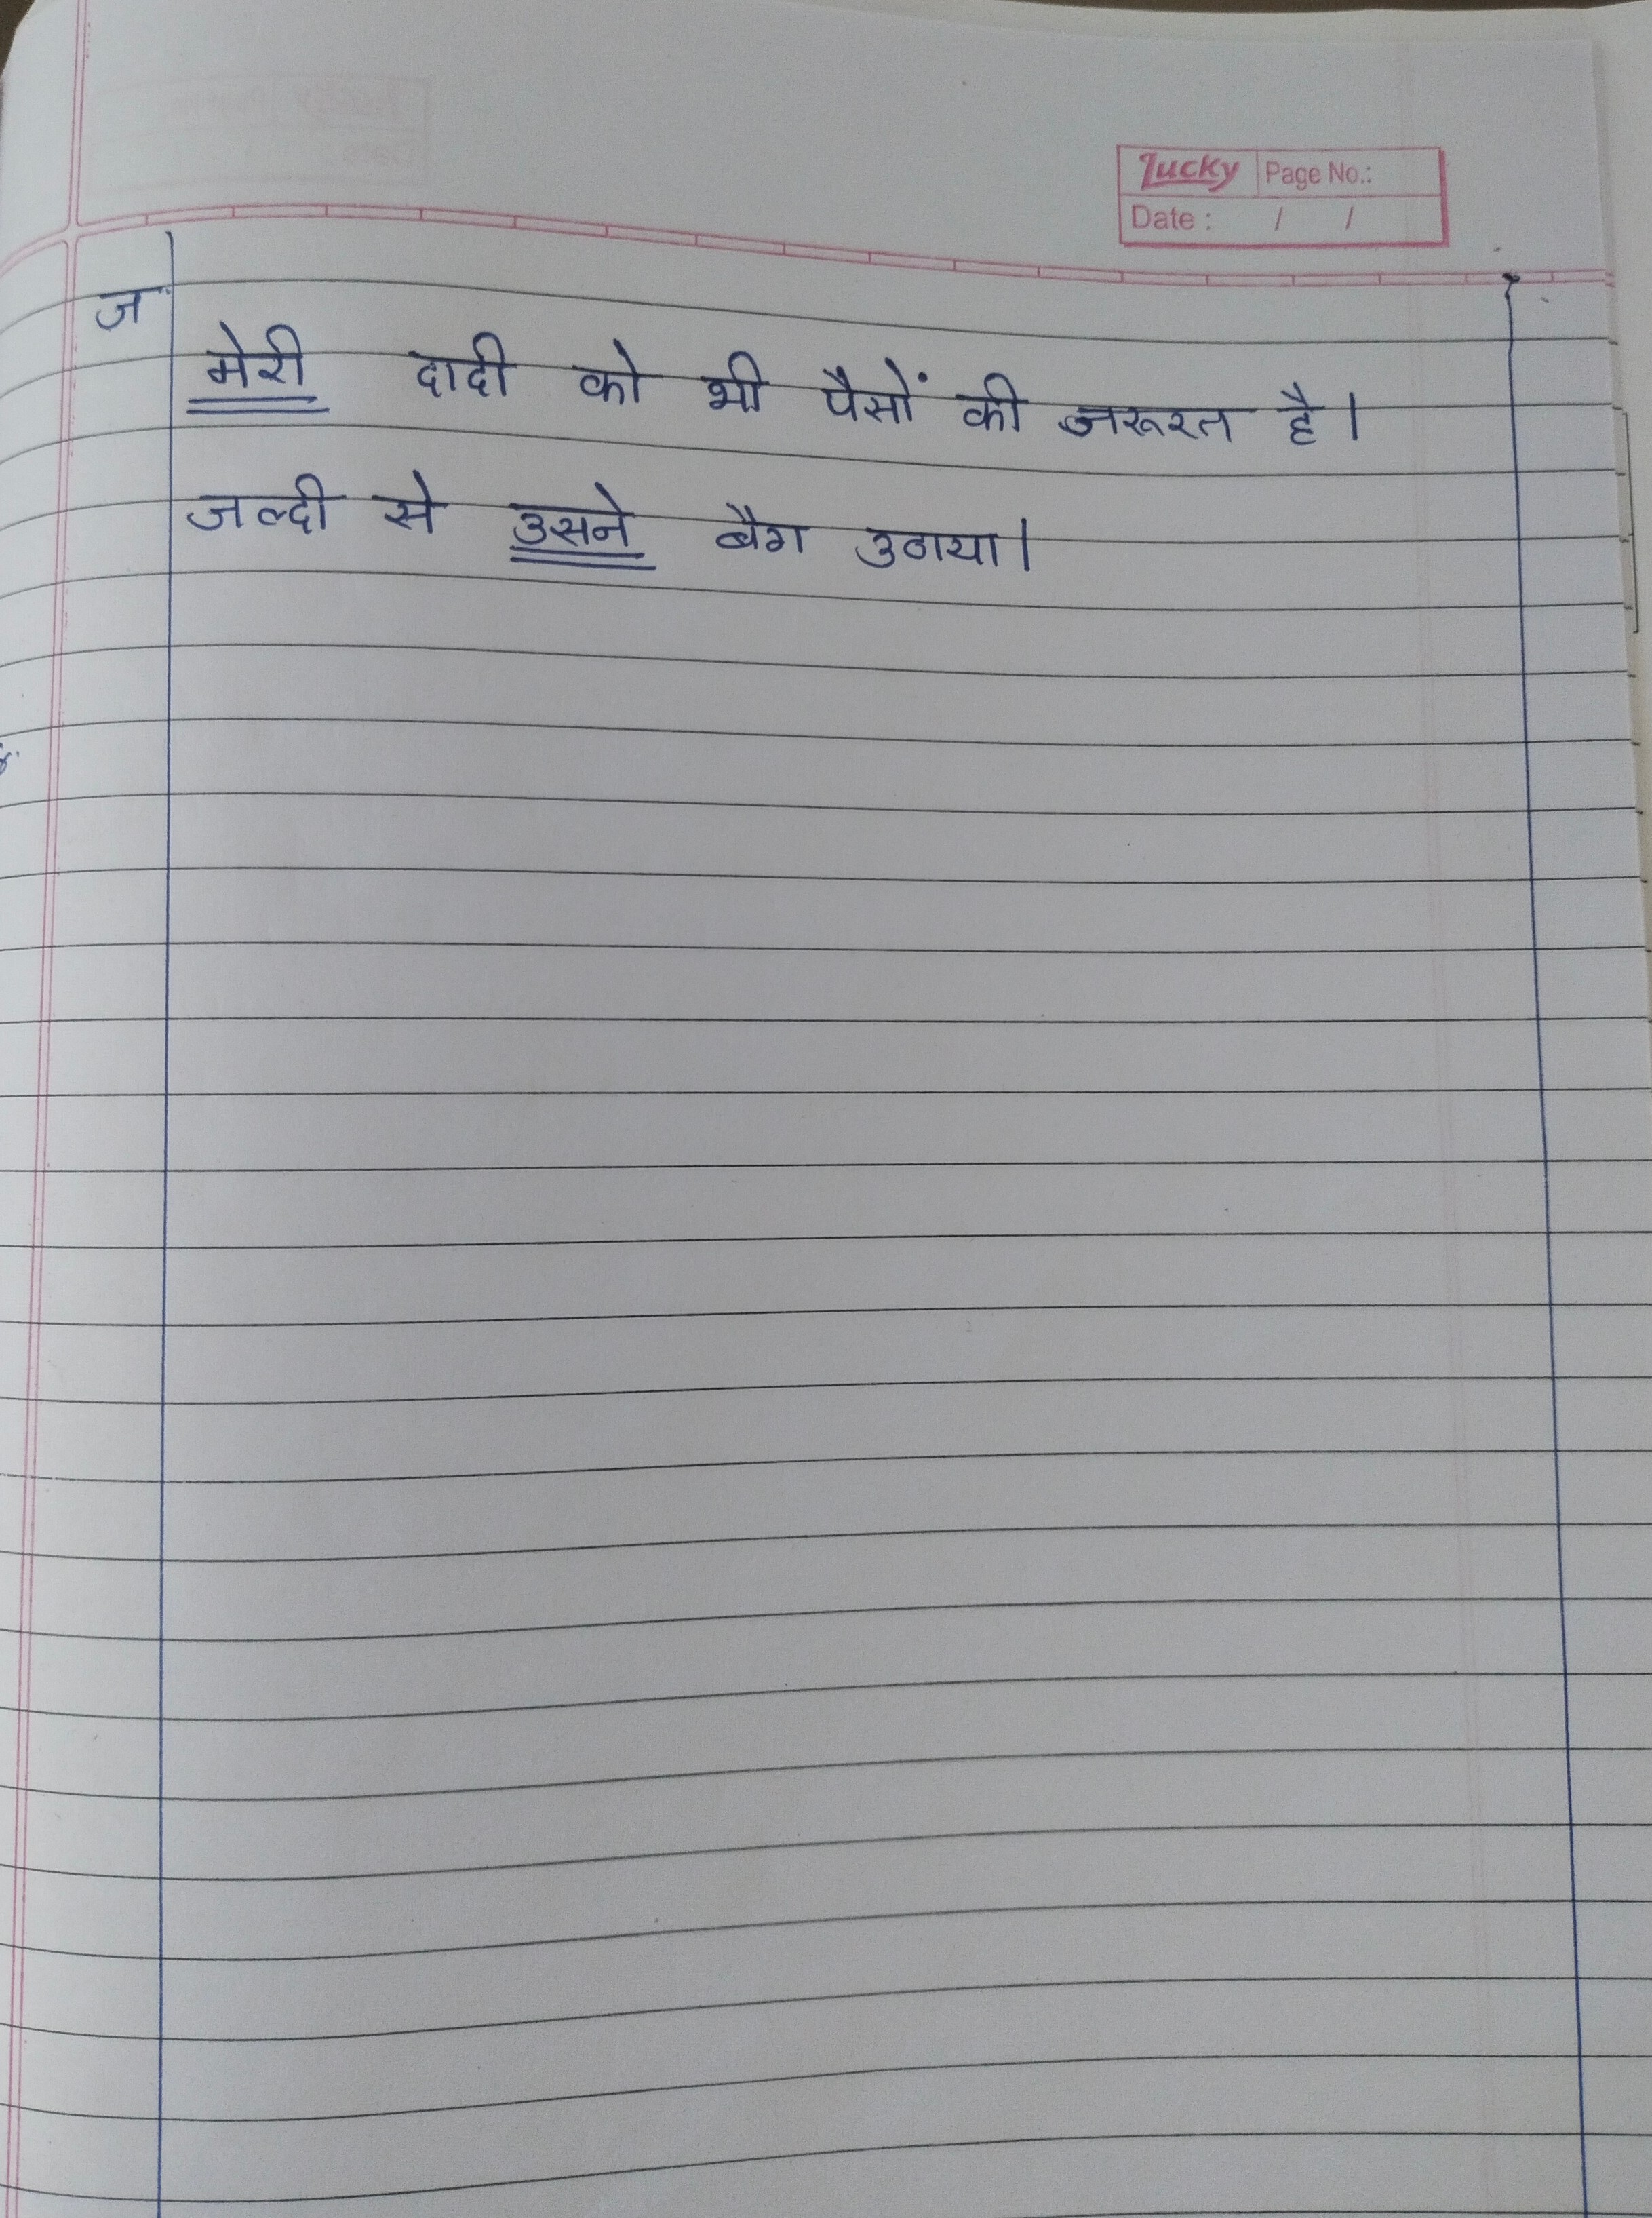 Lucky Page No.:
Date : / /
ज
मेरी दादी को भी पैसों की जरूरत है।
जल्दी से उसने बैग उठाया।